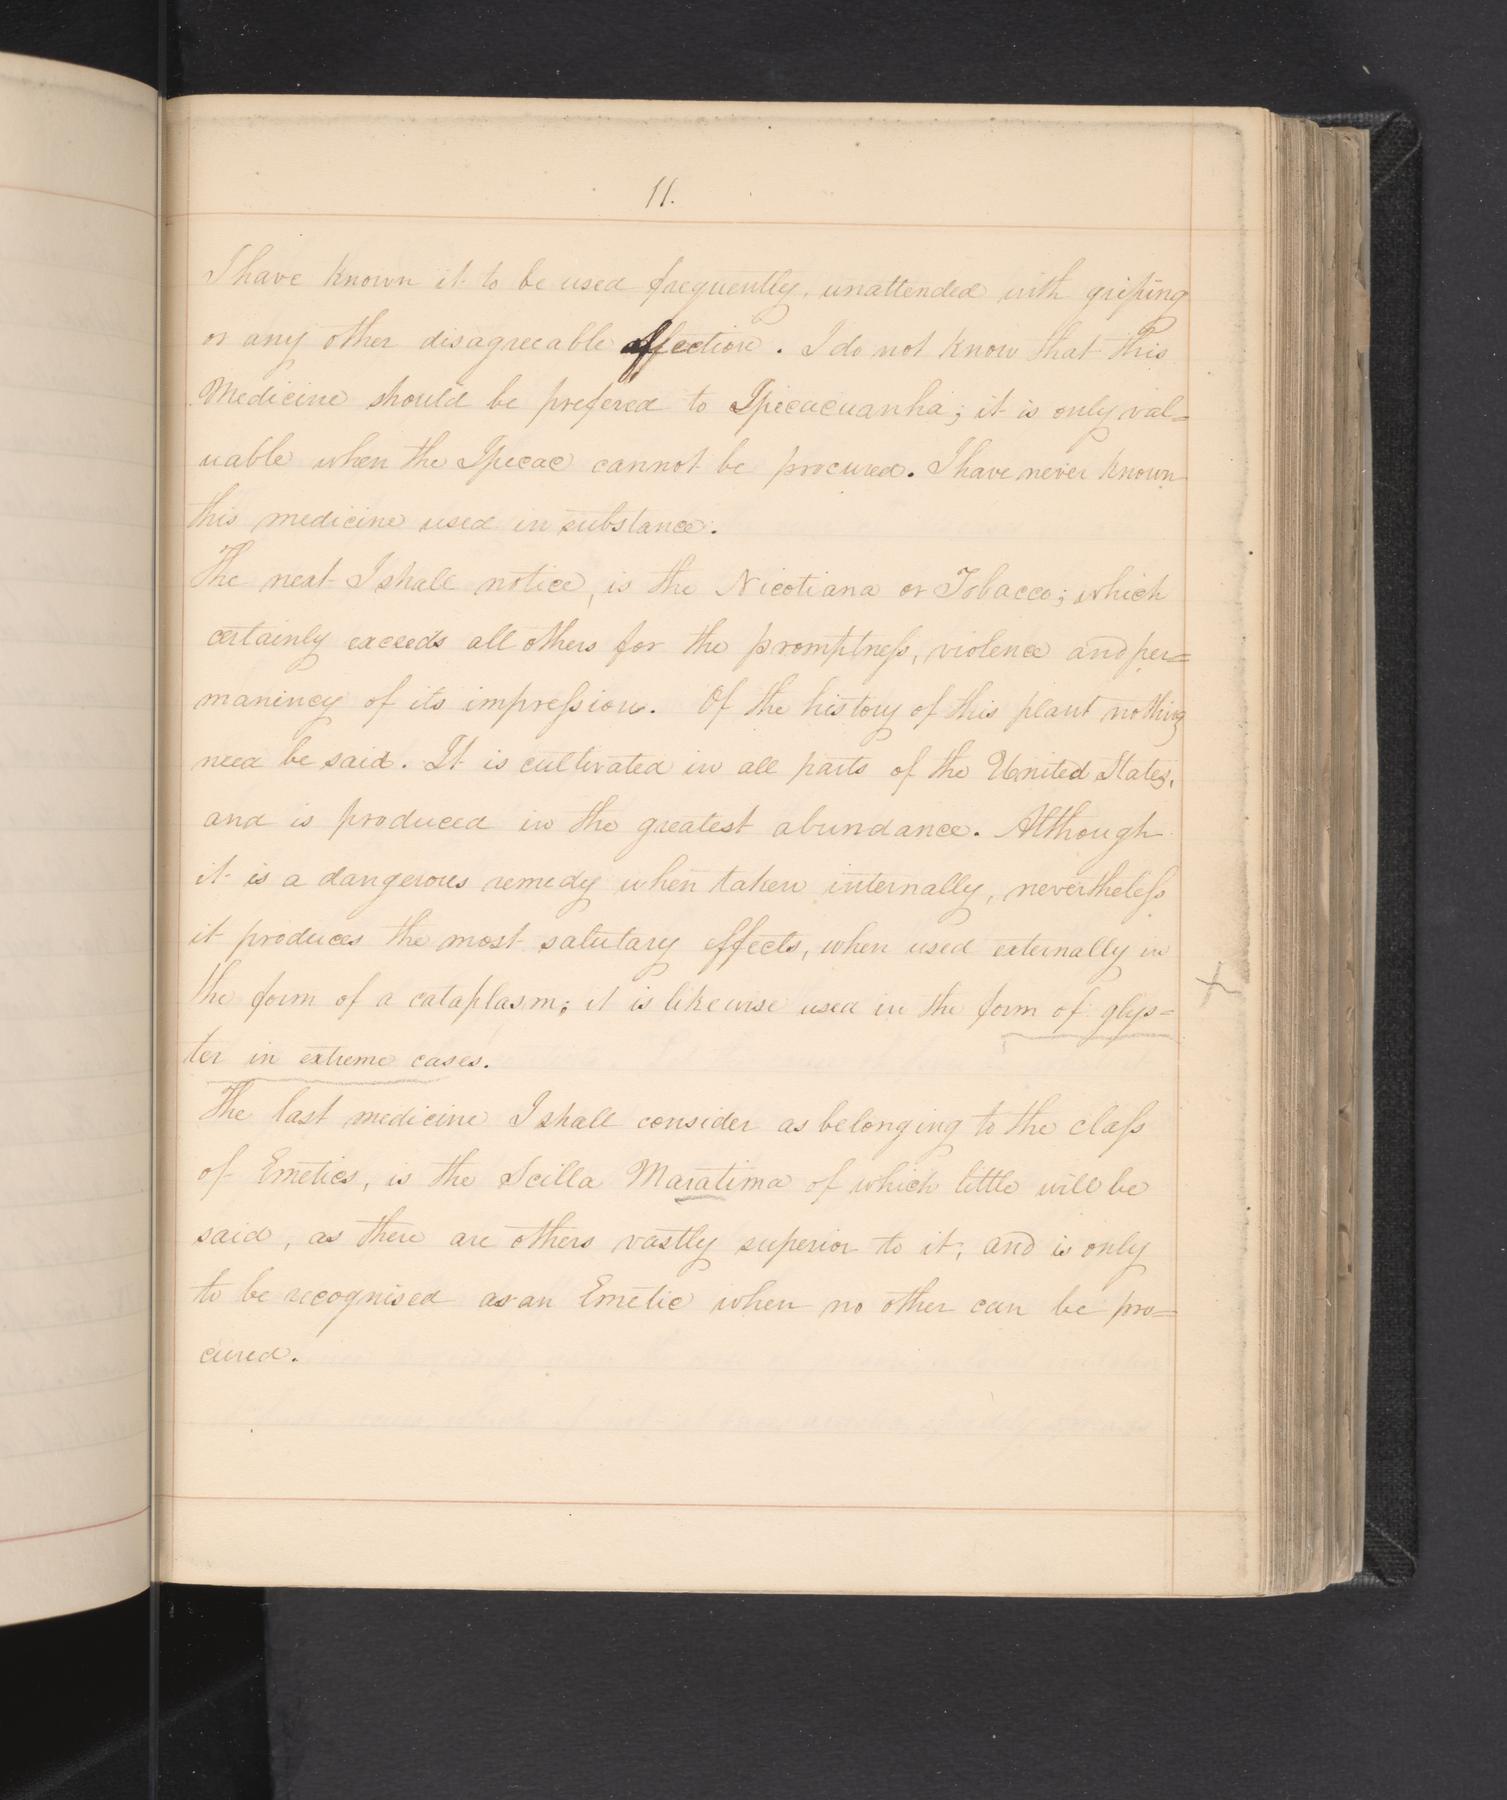 11.
I have known it to be used frequently, unattended with griping
or any other disagreeable affection. I do not know that this
Medicine should be prefered to Ipecacuanha; it is only val=
uable when the Ipecac cannot be procured. I have never known
this medicine used in substance.
The next I shall notice, is the Nicotiana or Tobacco; which
certainly exceeds all others for the promptness, violence and per=
manincy of its impression. Of the history of this plant nothing
need be said. It is cultivated in all parts of the United States,
and is produced in the greatest abundance. Although
it is a dangerous remedy when taken internally, nevertheless
it produces the most salutary effects, when used externally in
the form of a cataplasm; it is likewise used in the form of glys=
ter in extreme cases.
The last medicine I shall consider as belonging to the class
of Emetics, is the Scilla Maratima of which little will be
said, as there are others vastly superior to it, and is only
to be recognised as an Emetic when no other can be pro=
cured.